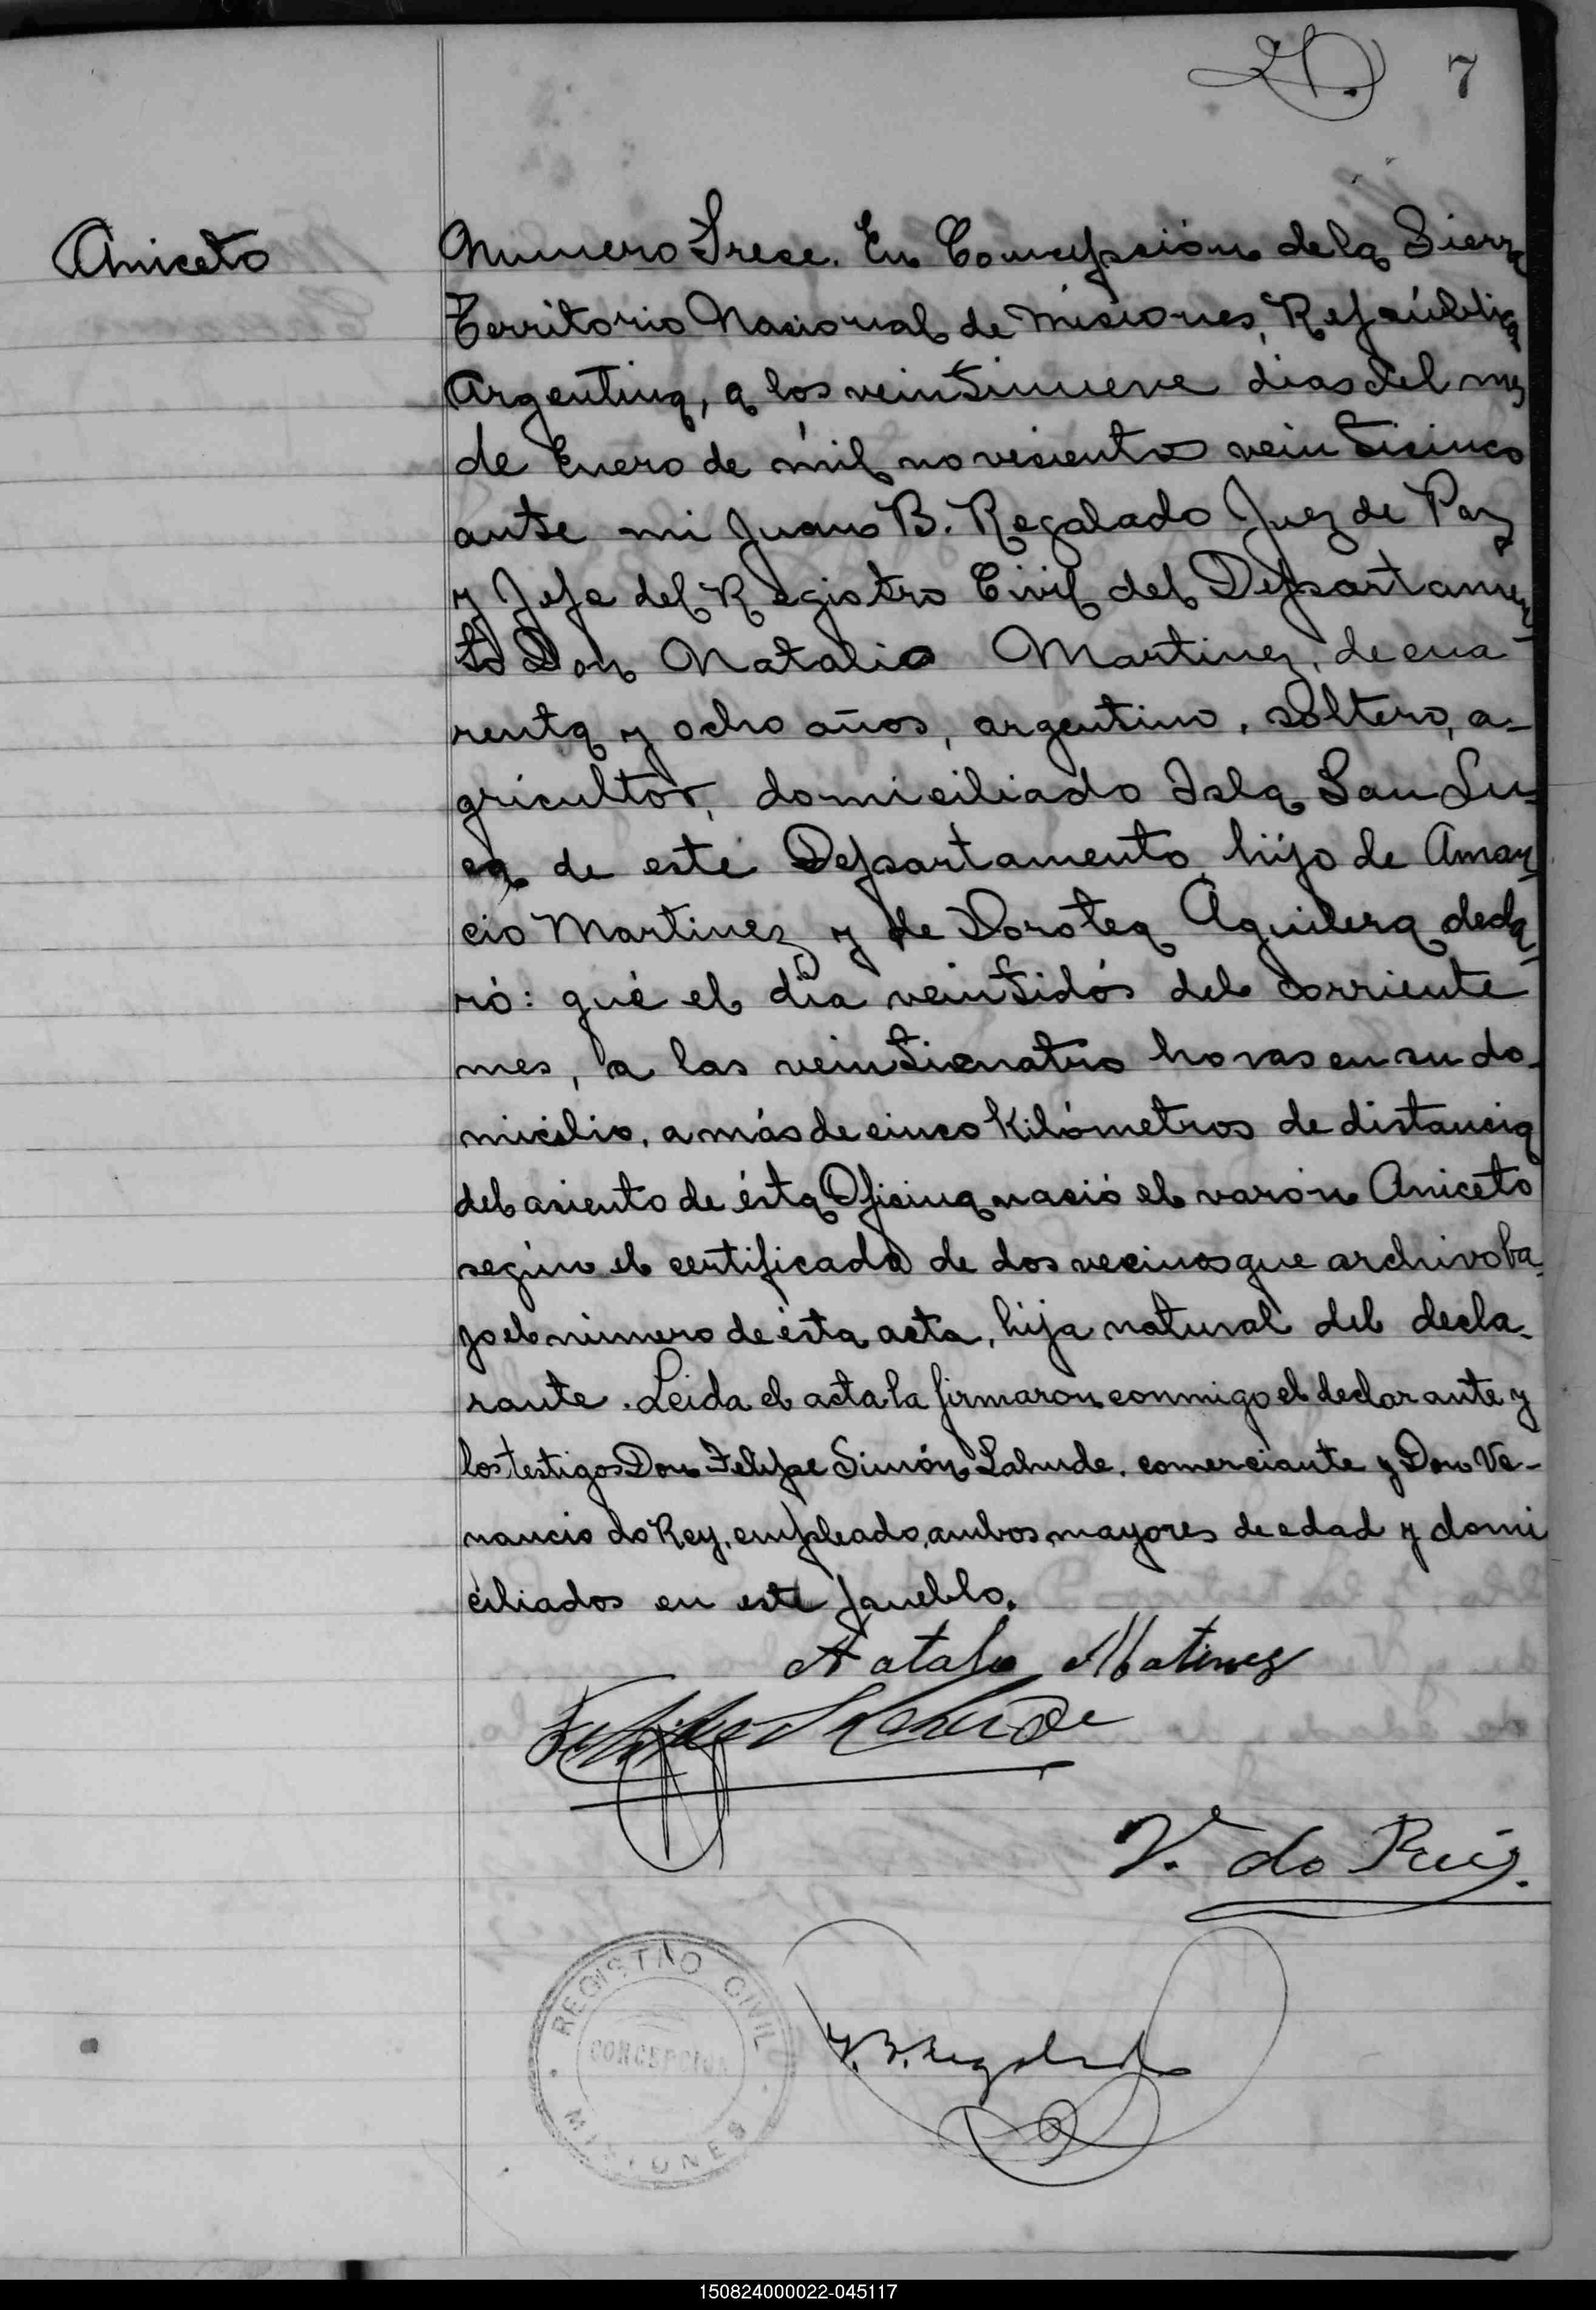 7
Aniceto
Numero Trece. En Concepción de la Sierra
Territorio Nacional de Misiones, República
Argentina, a los veintinueve dias del mes
de Enero de mil novecientos veinticinco
ante mi Juan B. Regalado Juez de Paz
y Jefe del Registro Civil del Departamen-
to Don Natalio Martinez, de cua-
renta y ocho años, argentino, soltero, a-
gricultor, domiciliado Isla San Lu-
ca de este Departamento, hijo de Aman-
cio Martinez y de Dorotea Aguilera decla-
ró: qué el dia veintidós del corriente
mes, a las veinticuatro horas en su do-
micilio, a más de cinco Kilómetros de distancia
del asiento de ésta Oficina nació el varón Aniceto
según el certificado de dos vecinos que archivo ba-
jo el número de esta acta, hija natural del decla-
rante. Leida el acta la firmaron conmigo el declarante y
los testigos Don Felipe Simón Lahude, comerciante y Don Ve-
nancio do Rey, empleado, ambos mayores de edad y domi
ciliados en este pueblo.
Natalio Matinez
Felipe S Lahude
V. do Rey.
REGISTRO CIVIL
CONCEPCION
MISIONES
J. B. Regalado
150824000022-045117